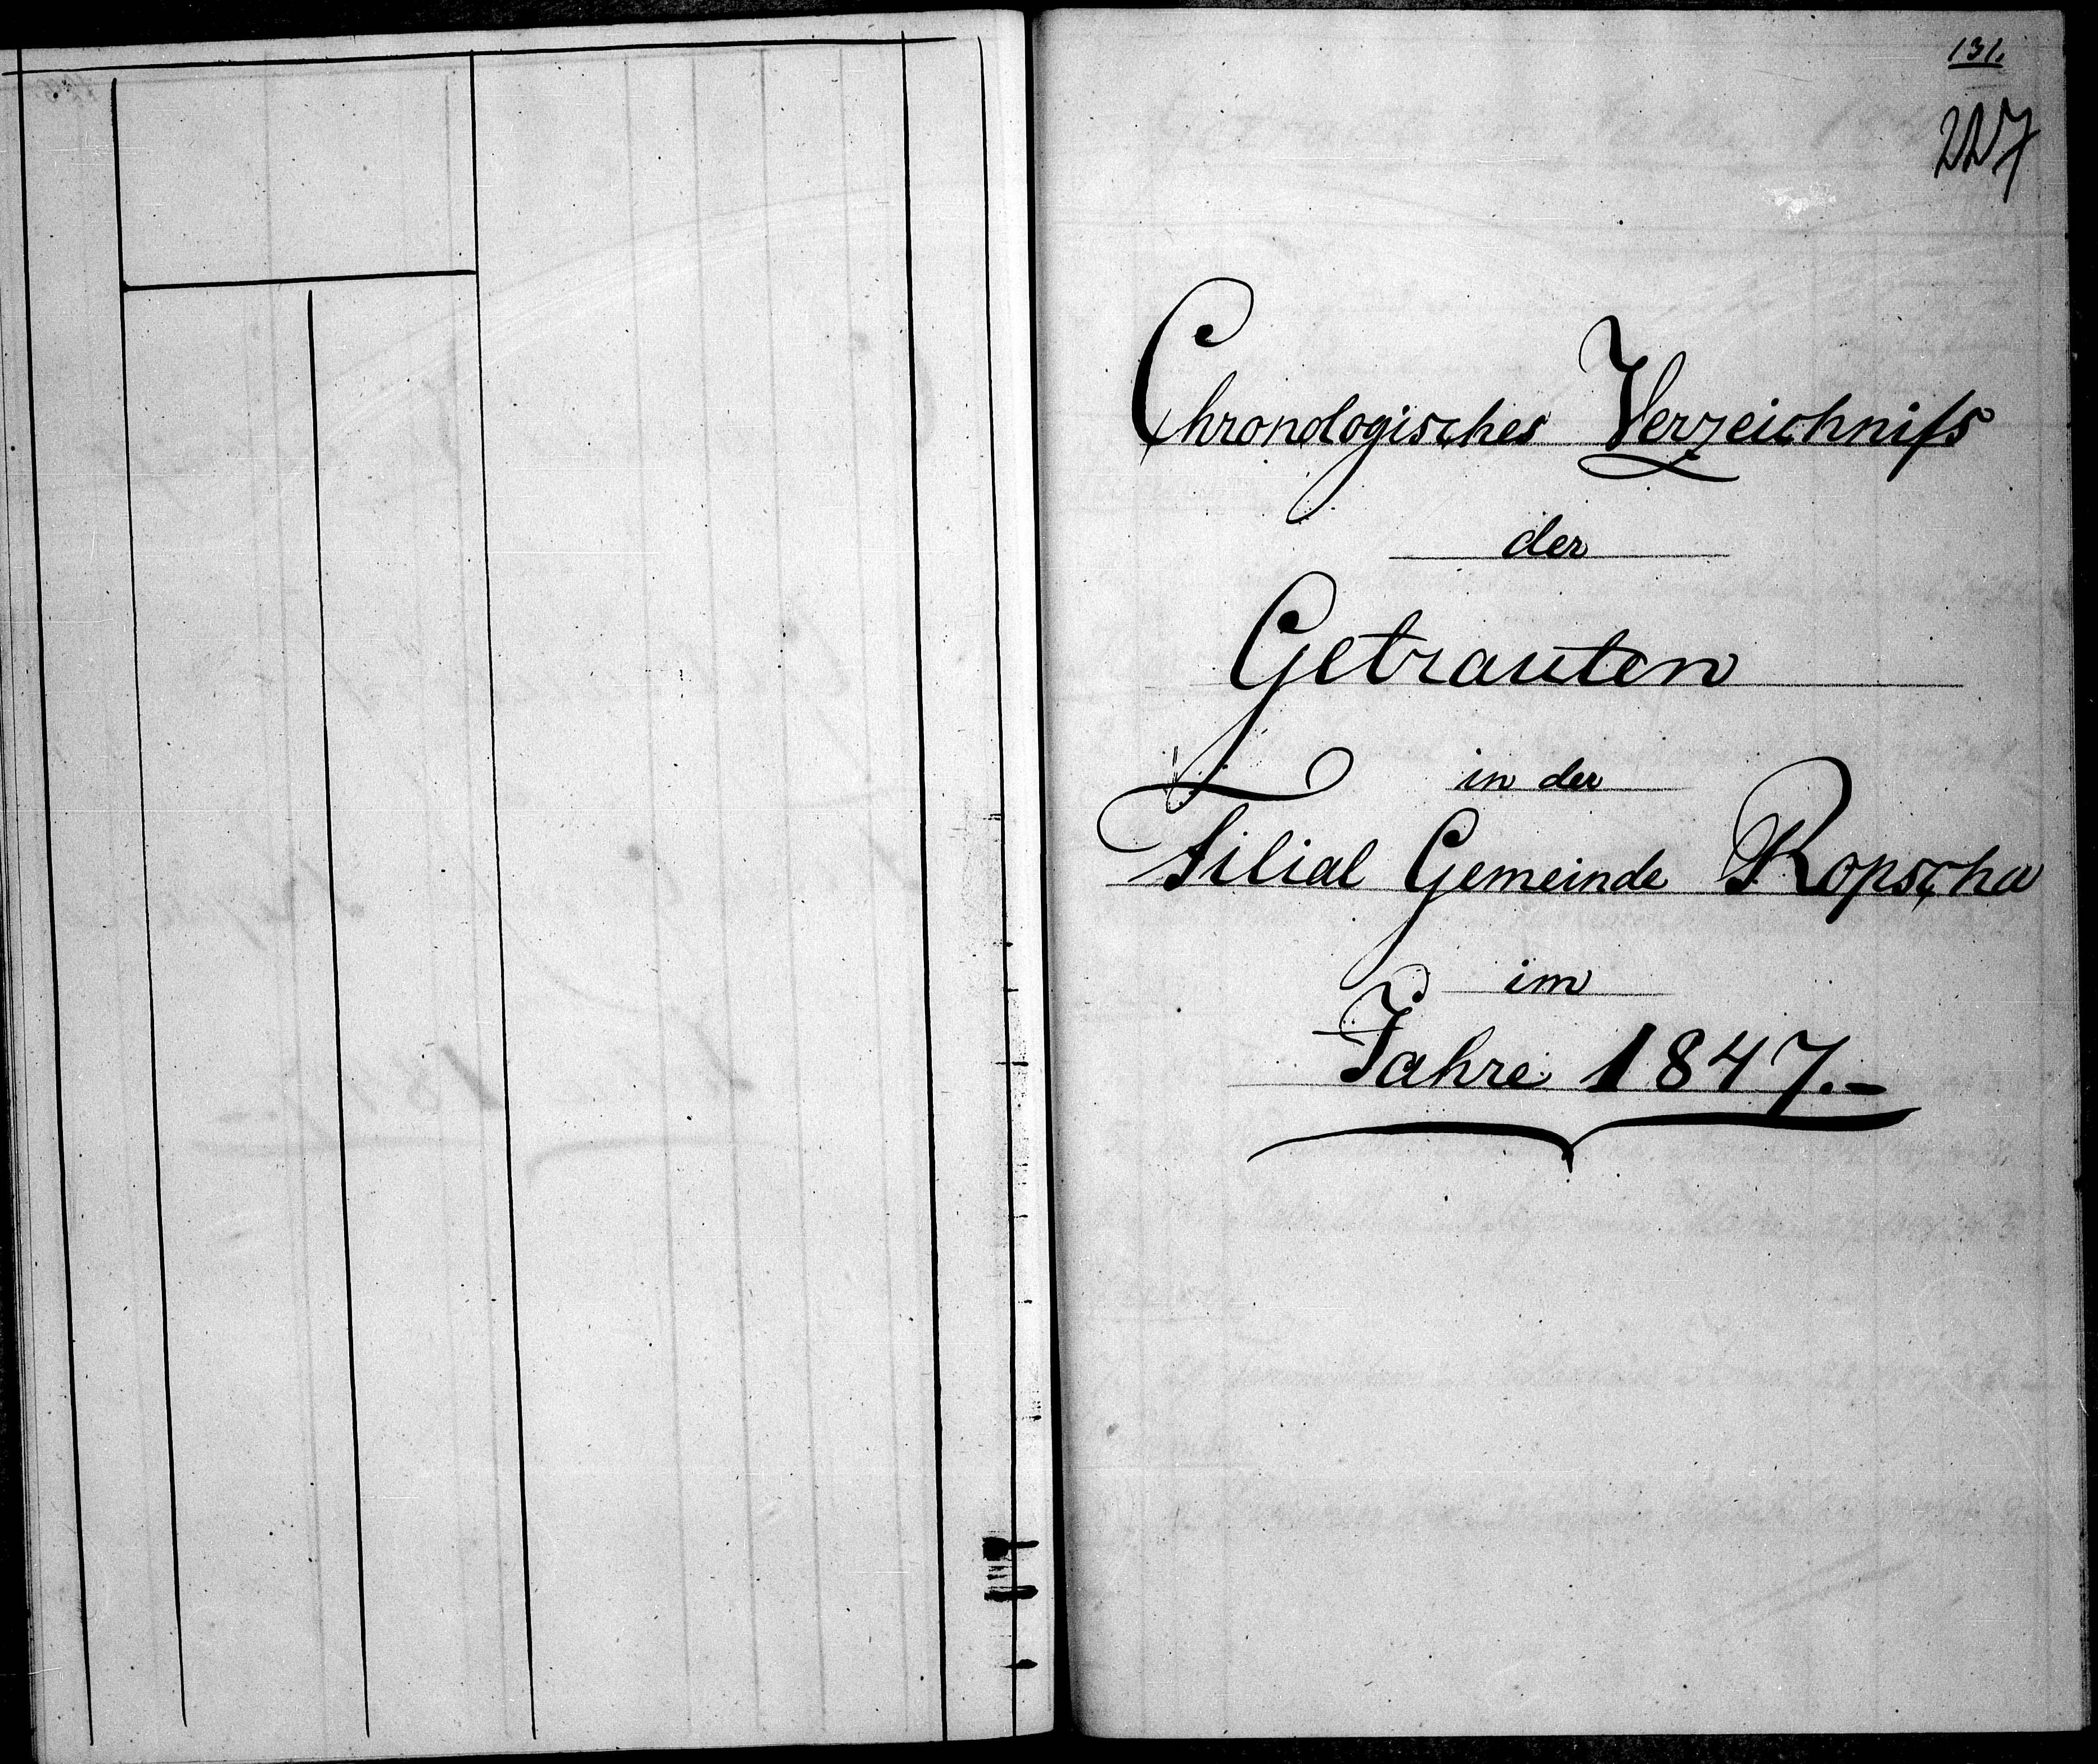 131.
227
Chronologisches Verzeichniſs
der
Getrauten
in der
Filial Gemeinde Ropscha
im
Jahre 1847.-